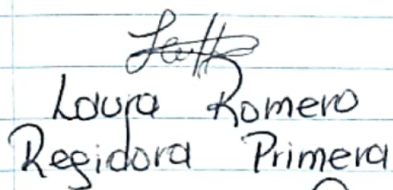 Laura Romero
Regidora Primera